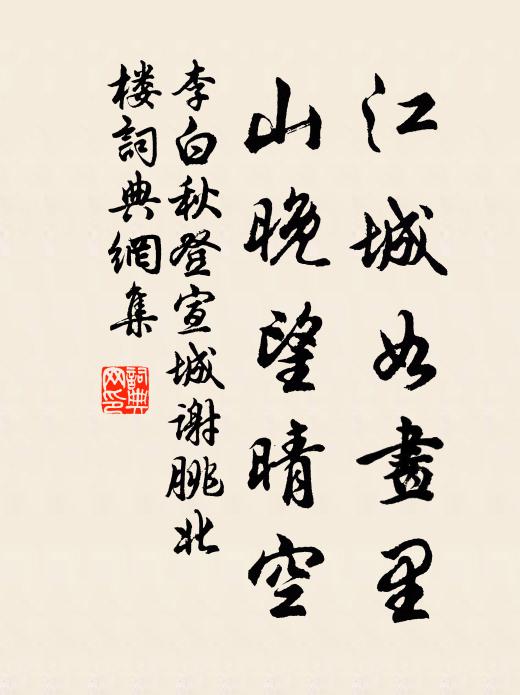 江城如畫里
山晚望晴空
李白秋登宣城謝朓北
楼詞典網集
詞典
网印